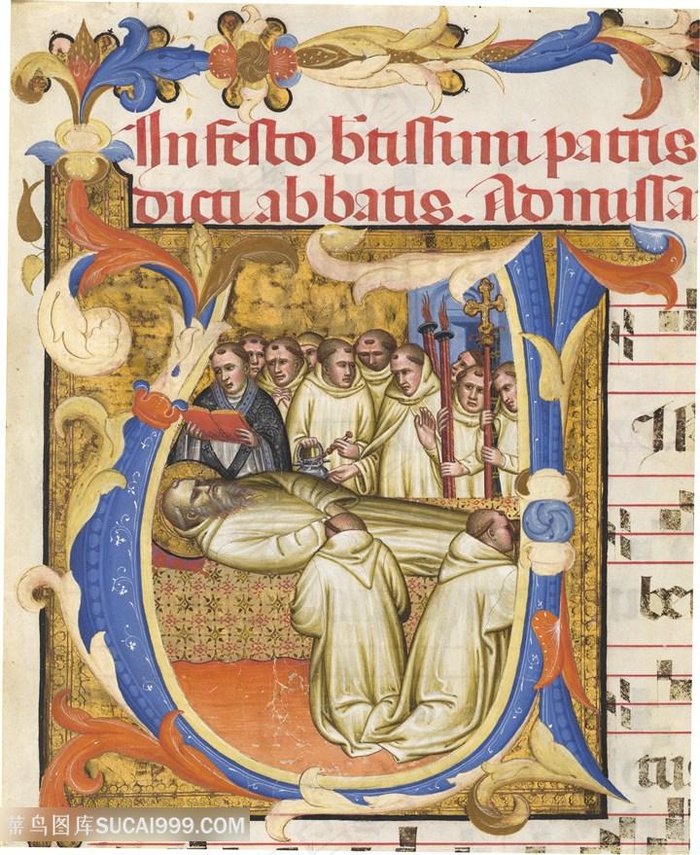 In festo btissimi patris
dicti abbatis. Ad missa
be
菜鸟图库SUCAI999.COM